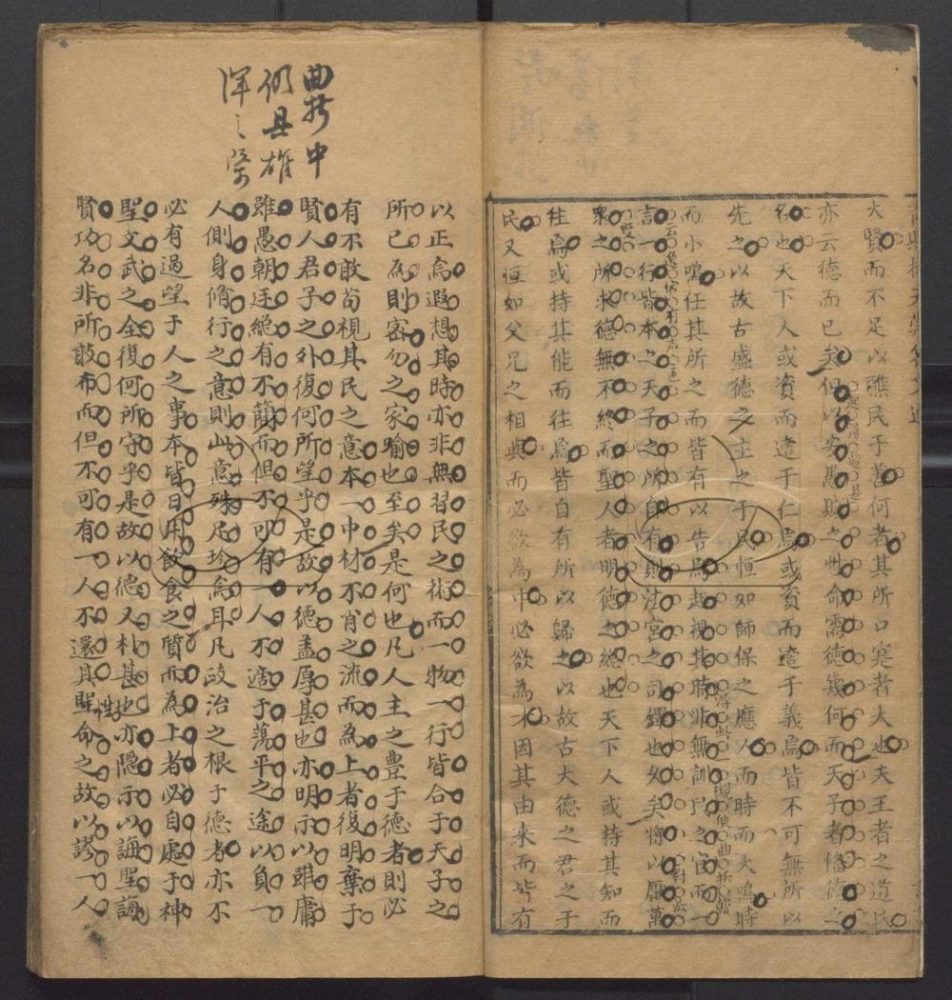 大賢而不足以醮民于善何者其所口寔者大也夫王者之道民
亦云德而已矣但以安愚賎之世命需德幾何而天子者偹德之
名也天下人或資而造于仁焉或資而造于義焉皆不可無所以
先之以故古盛德之主之于民恒如師保之應人而時而大鳴時
而小鳴任其所之而皆有以告焉起視其時非無訓之官而一
言一行皆本之天子之所自有則法宮之司鐸也久矣將以風萬
衆之所求德無不終而聖人者明德之總也天下人或持其知而
往焉或持其能而往焉皆自有所以歸之以故古大德之君之于
民又恒如父兄之相與而必欲為中必欲為才因其由来而皆有
曲折中
仍具雄
渾之
以正焉遐想其時亦非無習民之術而一物一行皆合于天子之
所已為則密勿之家喻也至矣是何也凡人主之豊于德者則必
有不敢苟視其民之意本一中材不肖之流而為上者復明棄于
賢人君子之外復何所望乎是故以德盖厚甚也亦明示以雖庸
雖愚朝廷絶有不蘭而但不可有一人不適于蕩平之途以負一
人側身脩行之意則此意殊足珍焉耳凡政治之根于德者亦不
必有過望于人之事本皆日用飲食之質而為上者必自處于神
聖文武之全復何所守乎是故以德又朴甚也亦隐示以誨聖誨
賢功名非所敢布而但不可有一人不還其性命之故以謬一人